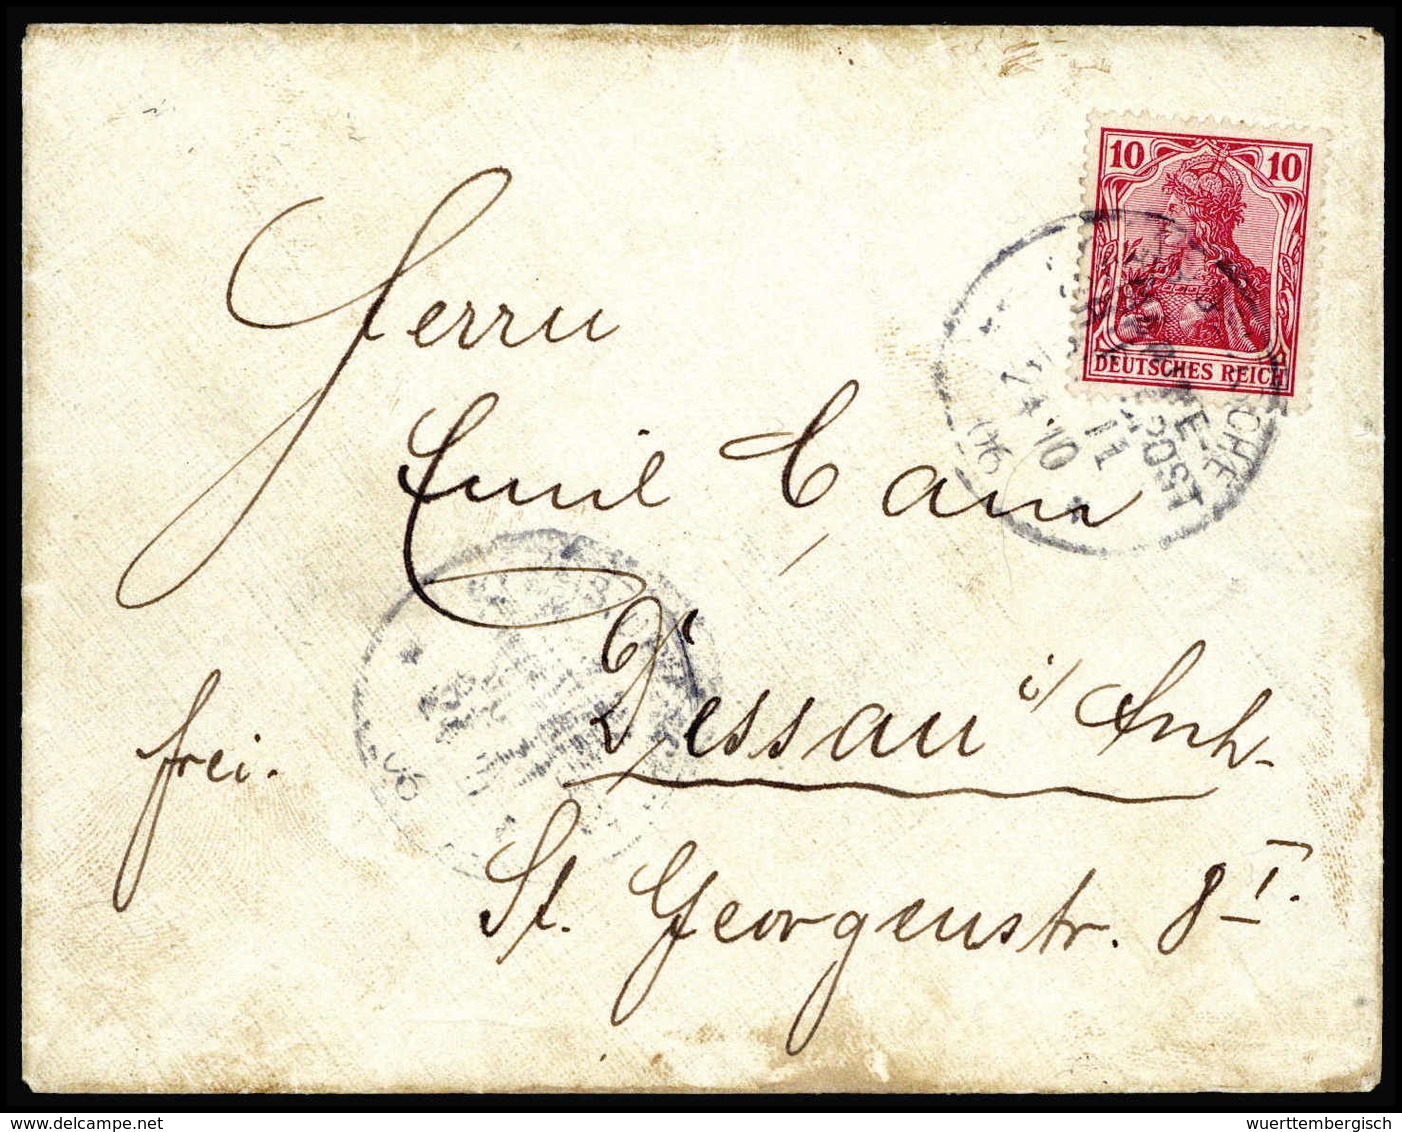 10 10
DEUTSCHES REICH
11
10
06
Herrn
Emil Cain
Dessau i/Anh.
frei.
06
St. Georgenstr. 8 I.
www.delcampe.net
wuerttembergisch